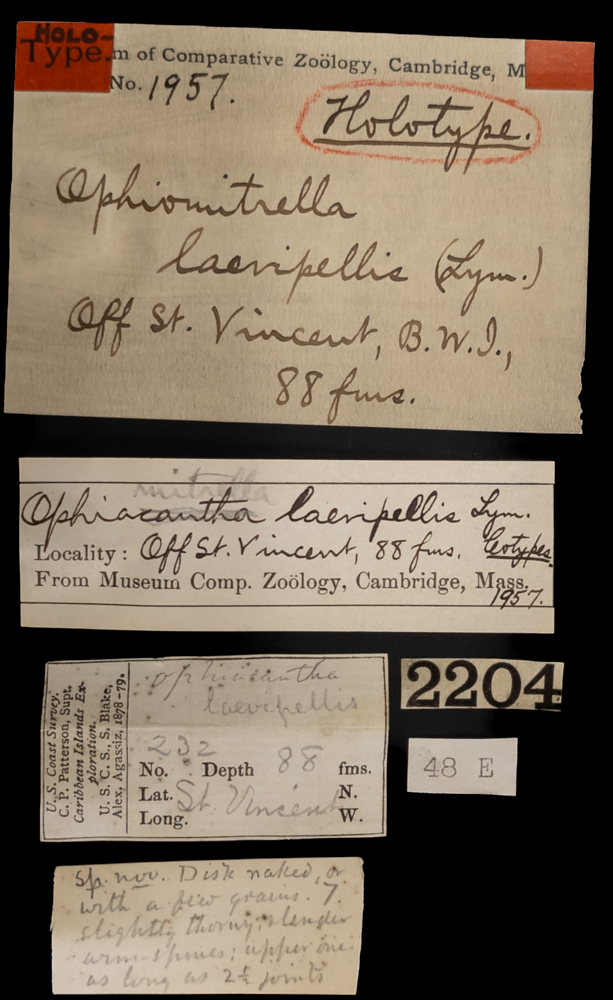 HOLO-
Type.
m of Comparative Zoölogy, Cambridge, M
No. 1957.
Holotype.
Ophiomitrella
laevipellis (Lym.)
Off St. Vincent, B.W.I.,
88 fms.
mitrella
Ophiacantha laevipellis Lym.
Locality: Off St. Vincent, 88 fms. Cotypes.
From Museum Comp. Zoölogy, Cambridge, Mass.
1957.
U. S. Coast Survey.
C. P. Patterson, Supt.
Caribbean Islands Ex-
ploration.
U. S. C. S., S. Blake,
Alex. Agassiz, 1878-79.
Ophiacantha
laevipellis
232
No. Depth 88 fms.
Lat. St Vincent N.
Long. W.
2204
48 E
sp. nov. Disk naked, or
with a few grains. 7.
slightly thorny, slender
arm-spines; upper one
as long as 2½ joints